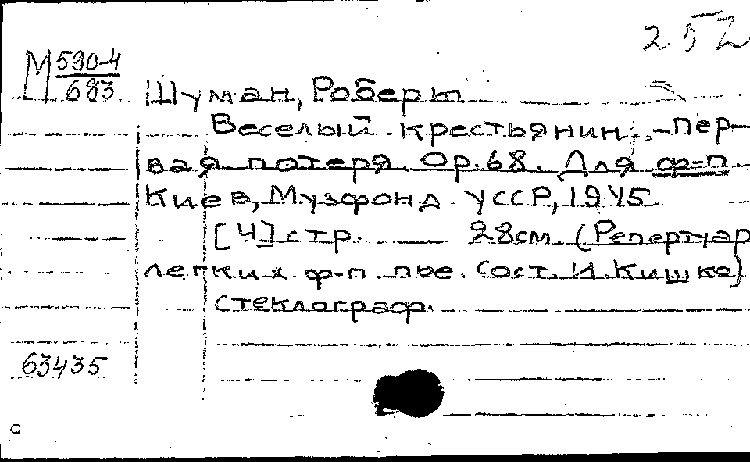 252
М 590-4
683
Шуман, Роберт
Веселый крестьянин. -Пер-
вая потеря. Ор.68. Для ф-п.
Киев, Музфонд УССР, 1945
[4] стр. 28см. (Репертуар
легких ф-п. пье. Сост. И. Кишко)
стеклограф.
63435